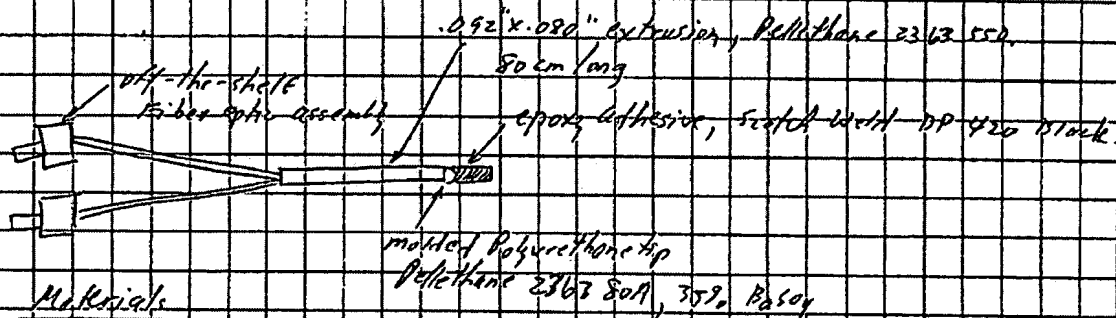 .092"x.080" extrusion, Pellethane 2363 55D.
80cm long
off-the-shelf
Fiber optic assembly
epoxy adhesive, Scotch Weld DP 420 Black.
molded Polyurethane tip
Pellethane 2363 80A, 35% BaSO4
Materials